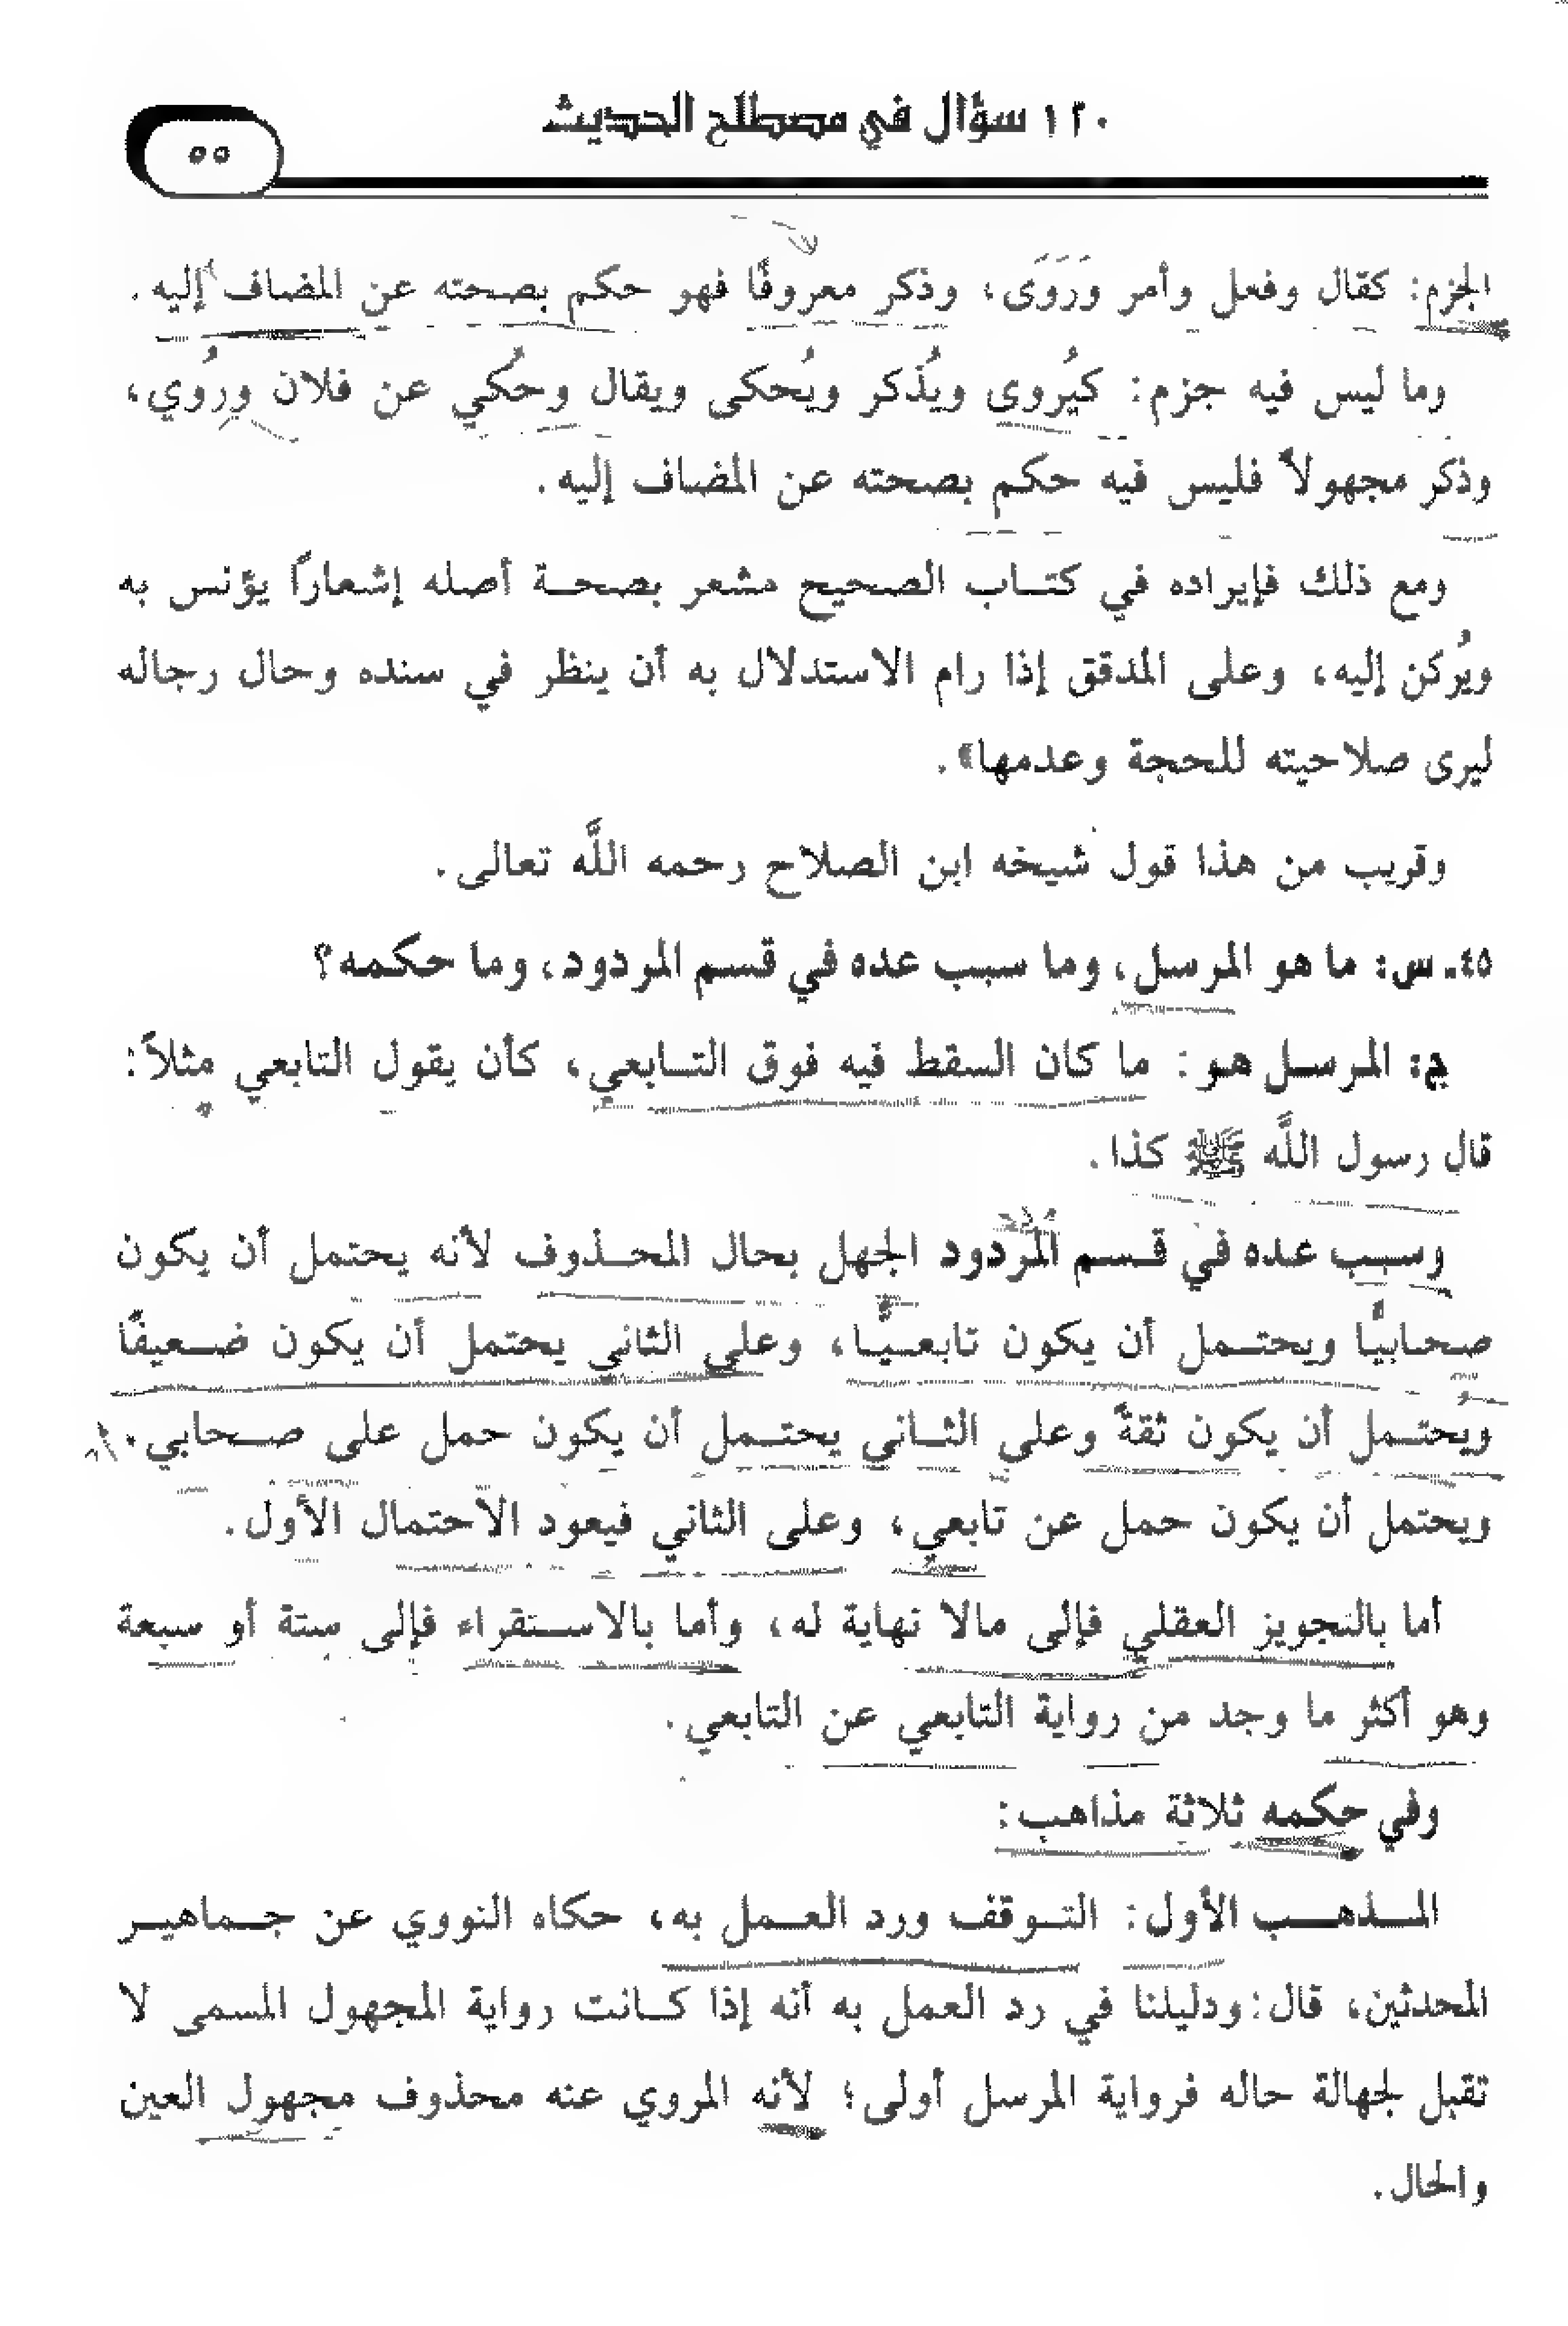 ١٢٠ سؤال في مصطلح الحديث
٥٥
الجزم: كقال وفعل وأمر ورَوَى، وذكر معروفًا فهو حكم بصحته عن المضاف إليه.
وما ليس فيه جزم: كيُروى ويُذكر ويُحكى ويقال وحُكي عن فلان ورُوي،
وذكر مجهولاً فليس فيه حكم بصحته عن المضاف إليه.
ومع ذلك فإيراده في كتاب الصحيح مشعر بصحة أصله إشعارًا يؤنس به
ويُركن إليه، وعلى المدقق إذا رام الاستدلال به أن ينظر في سنده وحال رجاله
ليرى صلاحيته للحجة وعدمها».
وقريب من هذا قول شيخه ابن الصلاح رحمه اللَّه تعالى.
٤٥ـ س: ما هو المرسل، وما سبب عده في قسم المردود، وما حكمه؟
ج: المرسل هو: ما كان السقط فيه فوق التابعي، كأن يقول التابعي مثلاً:
قال رسول اللَّه ﷺ كذا.
وسبب عده في قسم المردود الجهل بحال المحذوف لأنه يحتمل أن يكون
صحابيًّا ويحتمل أن يكون تابعيًّا، وعلى الثاني يحتمل أن يكون ضعيفًا
ويحتمل أن يكون ثقةً وعلى الثاني يحتمل أن يكون حمل على صحابي.
ويحتمل أن يكون حمل عن تابعي، وعلى الثاني فيعود الاحتمال الأول.
أما بالتجويز العقلي فإلى مالا نهاية له، وأما بالاستقراء فإلى ستة أو سبعة
وهو أكثر ما وجد من رواية التابعي عن التابعي.
وفي حكمه ثلاثة مذاهب:
المذهب الأول: التوقف ورد العمل به، حكاه النووي عن جماهير
المحدثين، قال: ودليلنا في رد العمل به أنه إذا كانت رواية المجهول المسمى لا
تقبل لجهالة حاله فرواية المرسل أولى؛ لأنه المروي عنه محذوف مجهول العين
والحال.